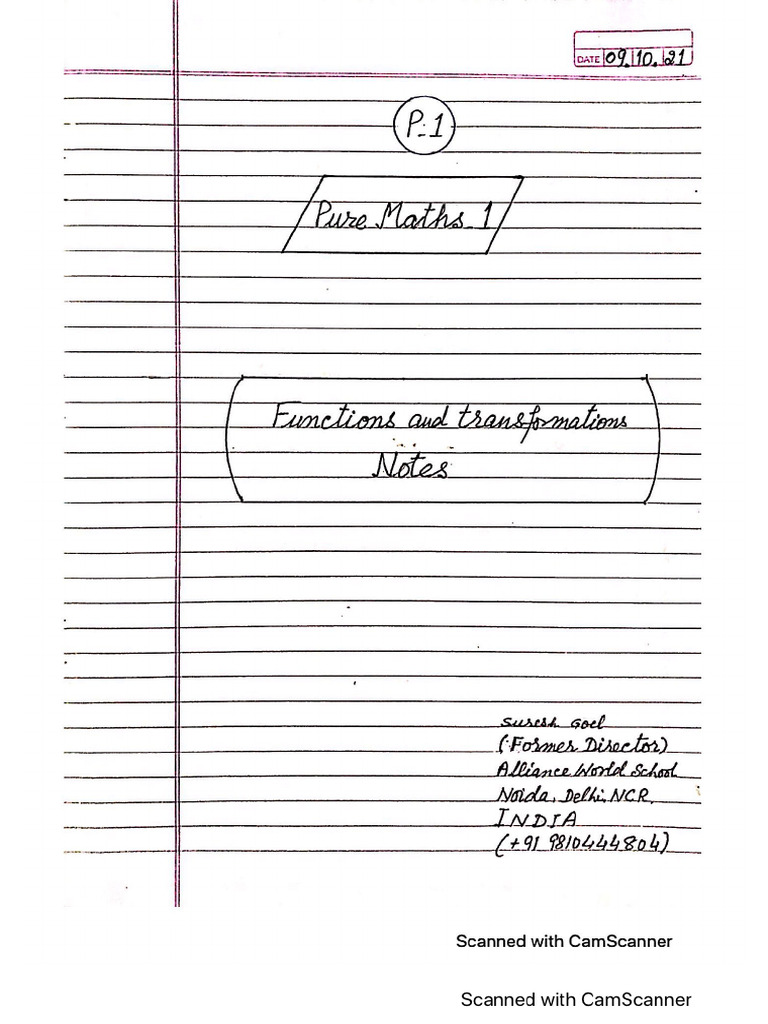 DATE 09.10.21
P-1
Pure Maths-1
Functions and transformations
Notes
Suresh Goel
(Former Director)
Alliance World School
Noida, Delhi, NCR,
INDIA
(+91 9810444804)
Scanned with CamScanner
Scanned with CamScanner